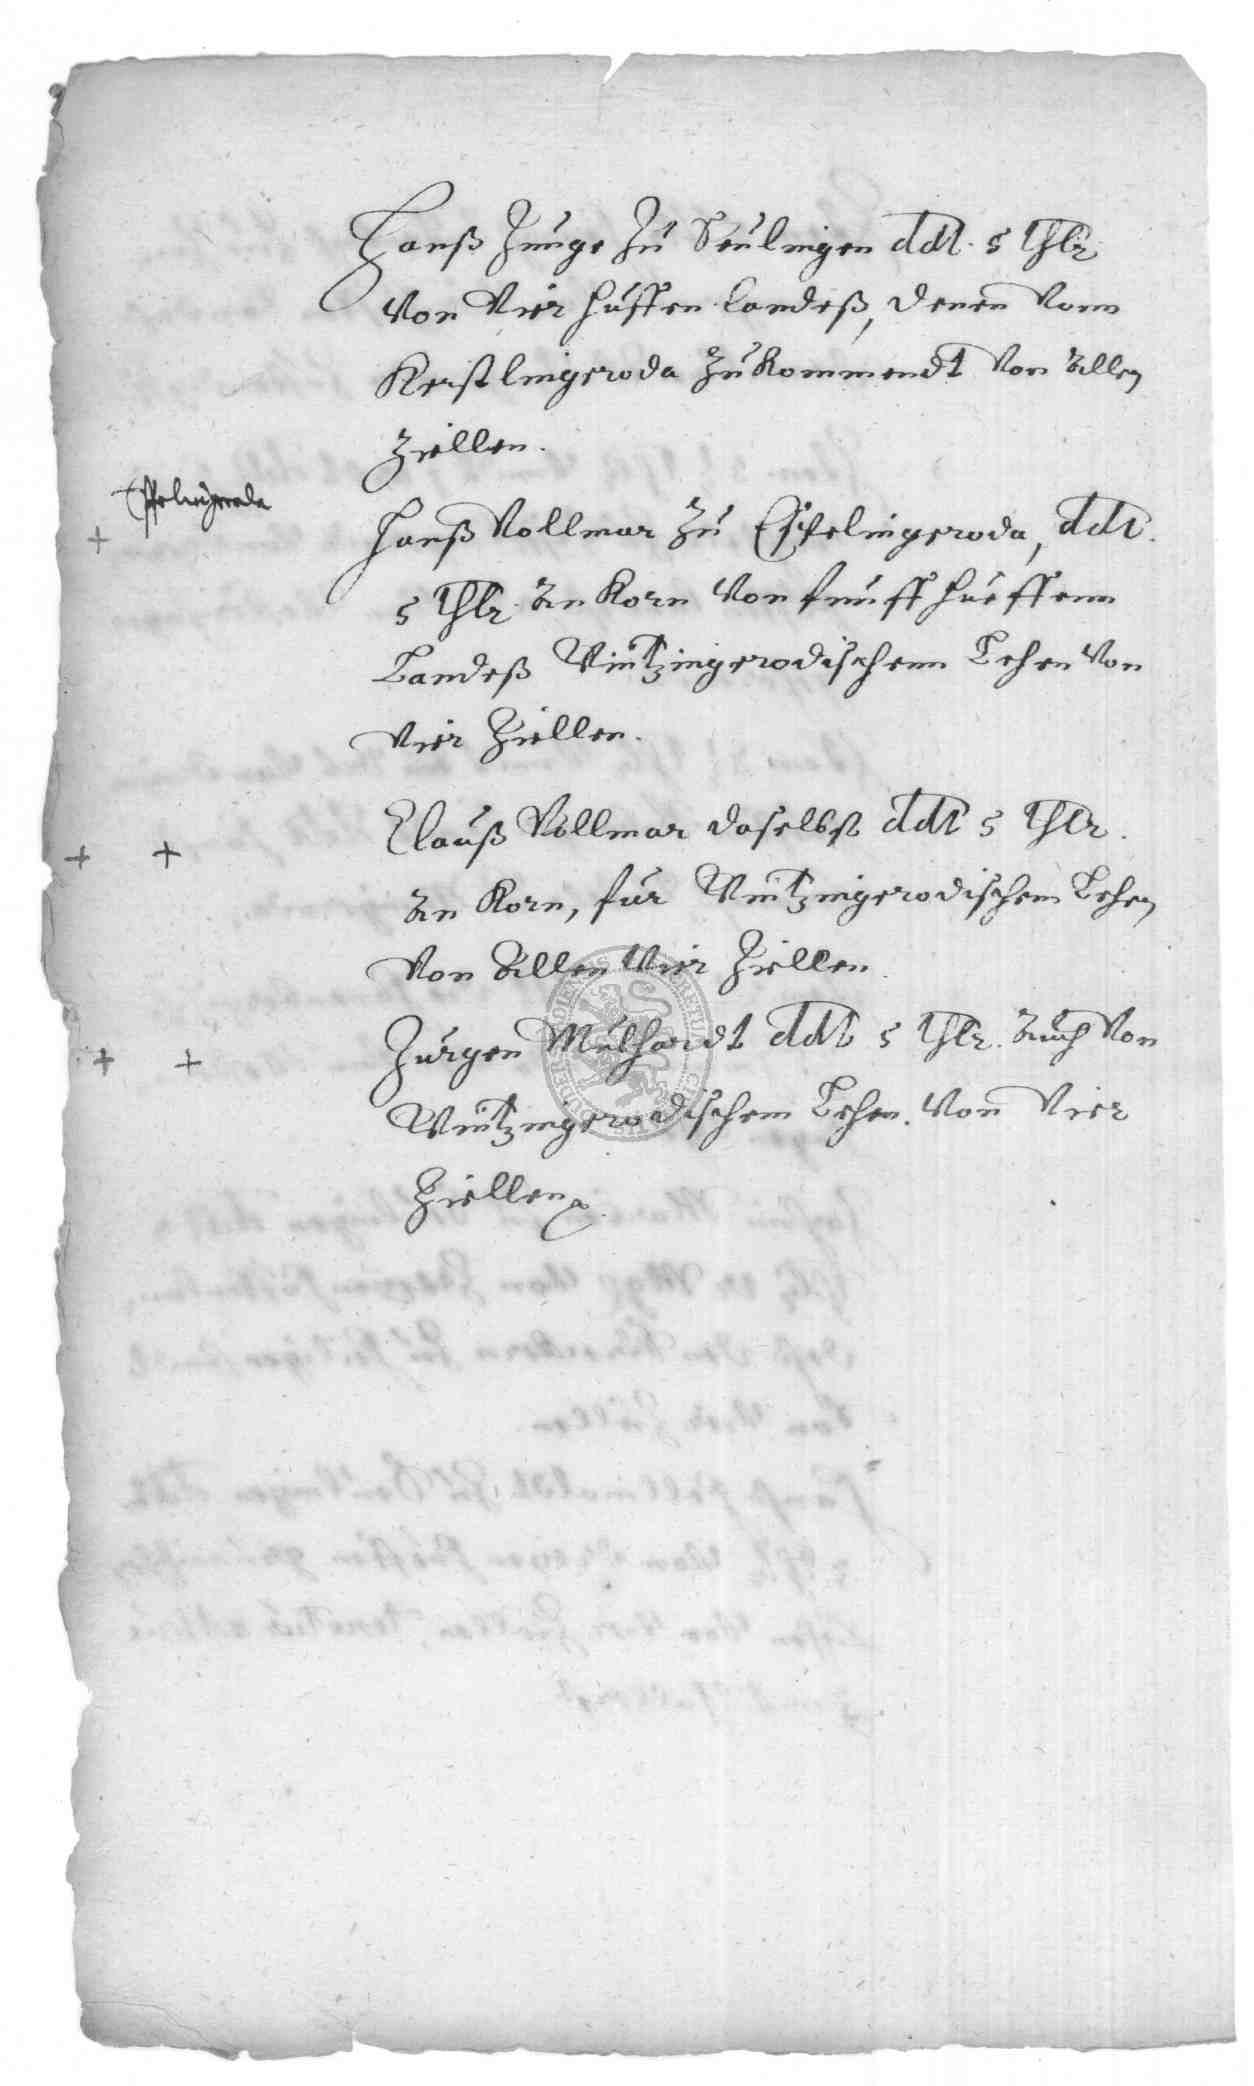 Hanß Junge Zu Seulingen ddt. 5 thlr.
Von Vier huffen Landeß, denen Vonn
Kerstlingeroda Zukommendt Von Allen
Ziellen.
Esplingeroda
+ Hanß Vollmar Zu Esplelingeroda, ddt.
5 thlr. An Korn Von funff hueffenn
Landeß Wintzingerodischenn Lehen Von
Vier Ziellen.
+ + Clauß Vollmar daselbst ddt 5 thlr.
An Korn, fur Wintzingerodischem Lehen
Von Allen Vier Ziellen.
+ + Jurgen Mulhardt ddt 5 thlr. Auch Von
Wintzingerodischem Lehen. Von Vier
Ziellen